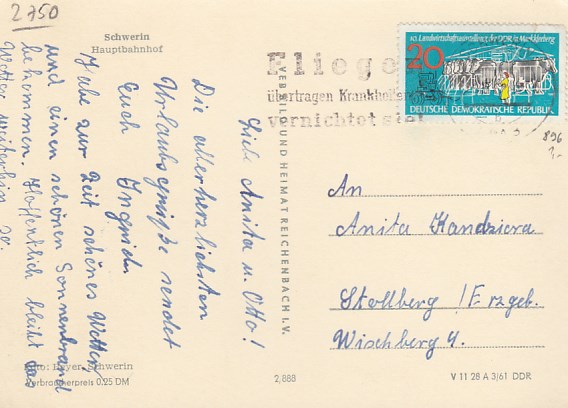 2750
Schwerin
Hauptbahnhof
Liebe Anita u. Otto!
Die allerherzlichsten
Urlaubsgrüße sendet
Euch Ingrid.
Habe zur Zeit schönes Wetter
und einen schönen Sonnenbrand
bekommen. Hoffentlich bleibt das
Wetter weiterhin so.
Foto: Beyer, Schwerin
Verbraucherpreis 0,25 DM
2,888
VEB BILD UND HEIMAT REICHENBACH I. V.
Fliege
übertragen Krankheits
vernichtet sie!
10. Landwirtschaftsausstellung der DDR in Markkleeberg
20
DEUTSCHE DEMOKRATISCHE REPUBLIK
896
An
Anita Kandziora
Stollberg /Erzgeb.
Wischberg 4.
V 11 28 A 3/61 DDR